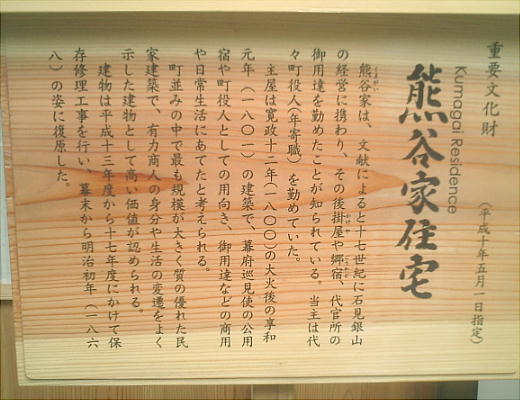 重要文化財
熊谷家住宅
Kumagai Residence
（平成十年五月一日指定）
熊谷家は、文献によると十七世紀に石見銀山
の経営に携わり、その後掛屋や郷宿、代官所の
御用達を勤めたことが知られている。当主は代
々町役人（年寄職）を勤めていた。
主屋は寛政十二年（一八〇〇）の大火後の享和
元年（一八〇一）の建築で、幕府巡見使の公用
宿や町役人としての用向き、御用達などの商用
や日常生活にあてたと考えられる。
町並みの中で最も規模が大きく質の優れた民
家建築で、有力商人の身分や生活の変遷をよく
示した建物として高い価値が認められる。
建物は平成十三年度から十七年度にかけて保
存修理工事を行い、幕末から明治初年（一八六
八）の姿に復原した。